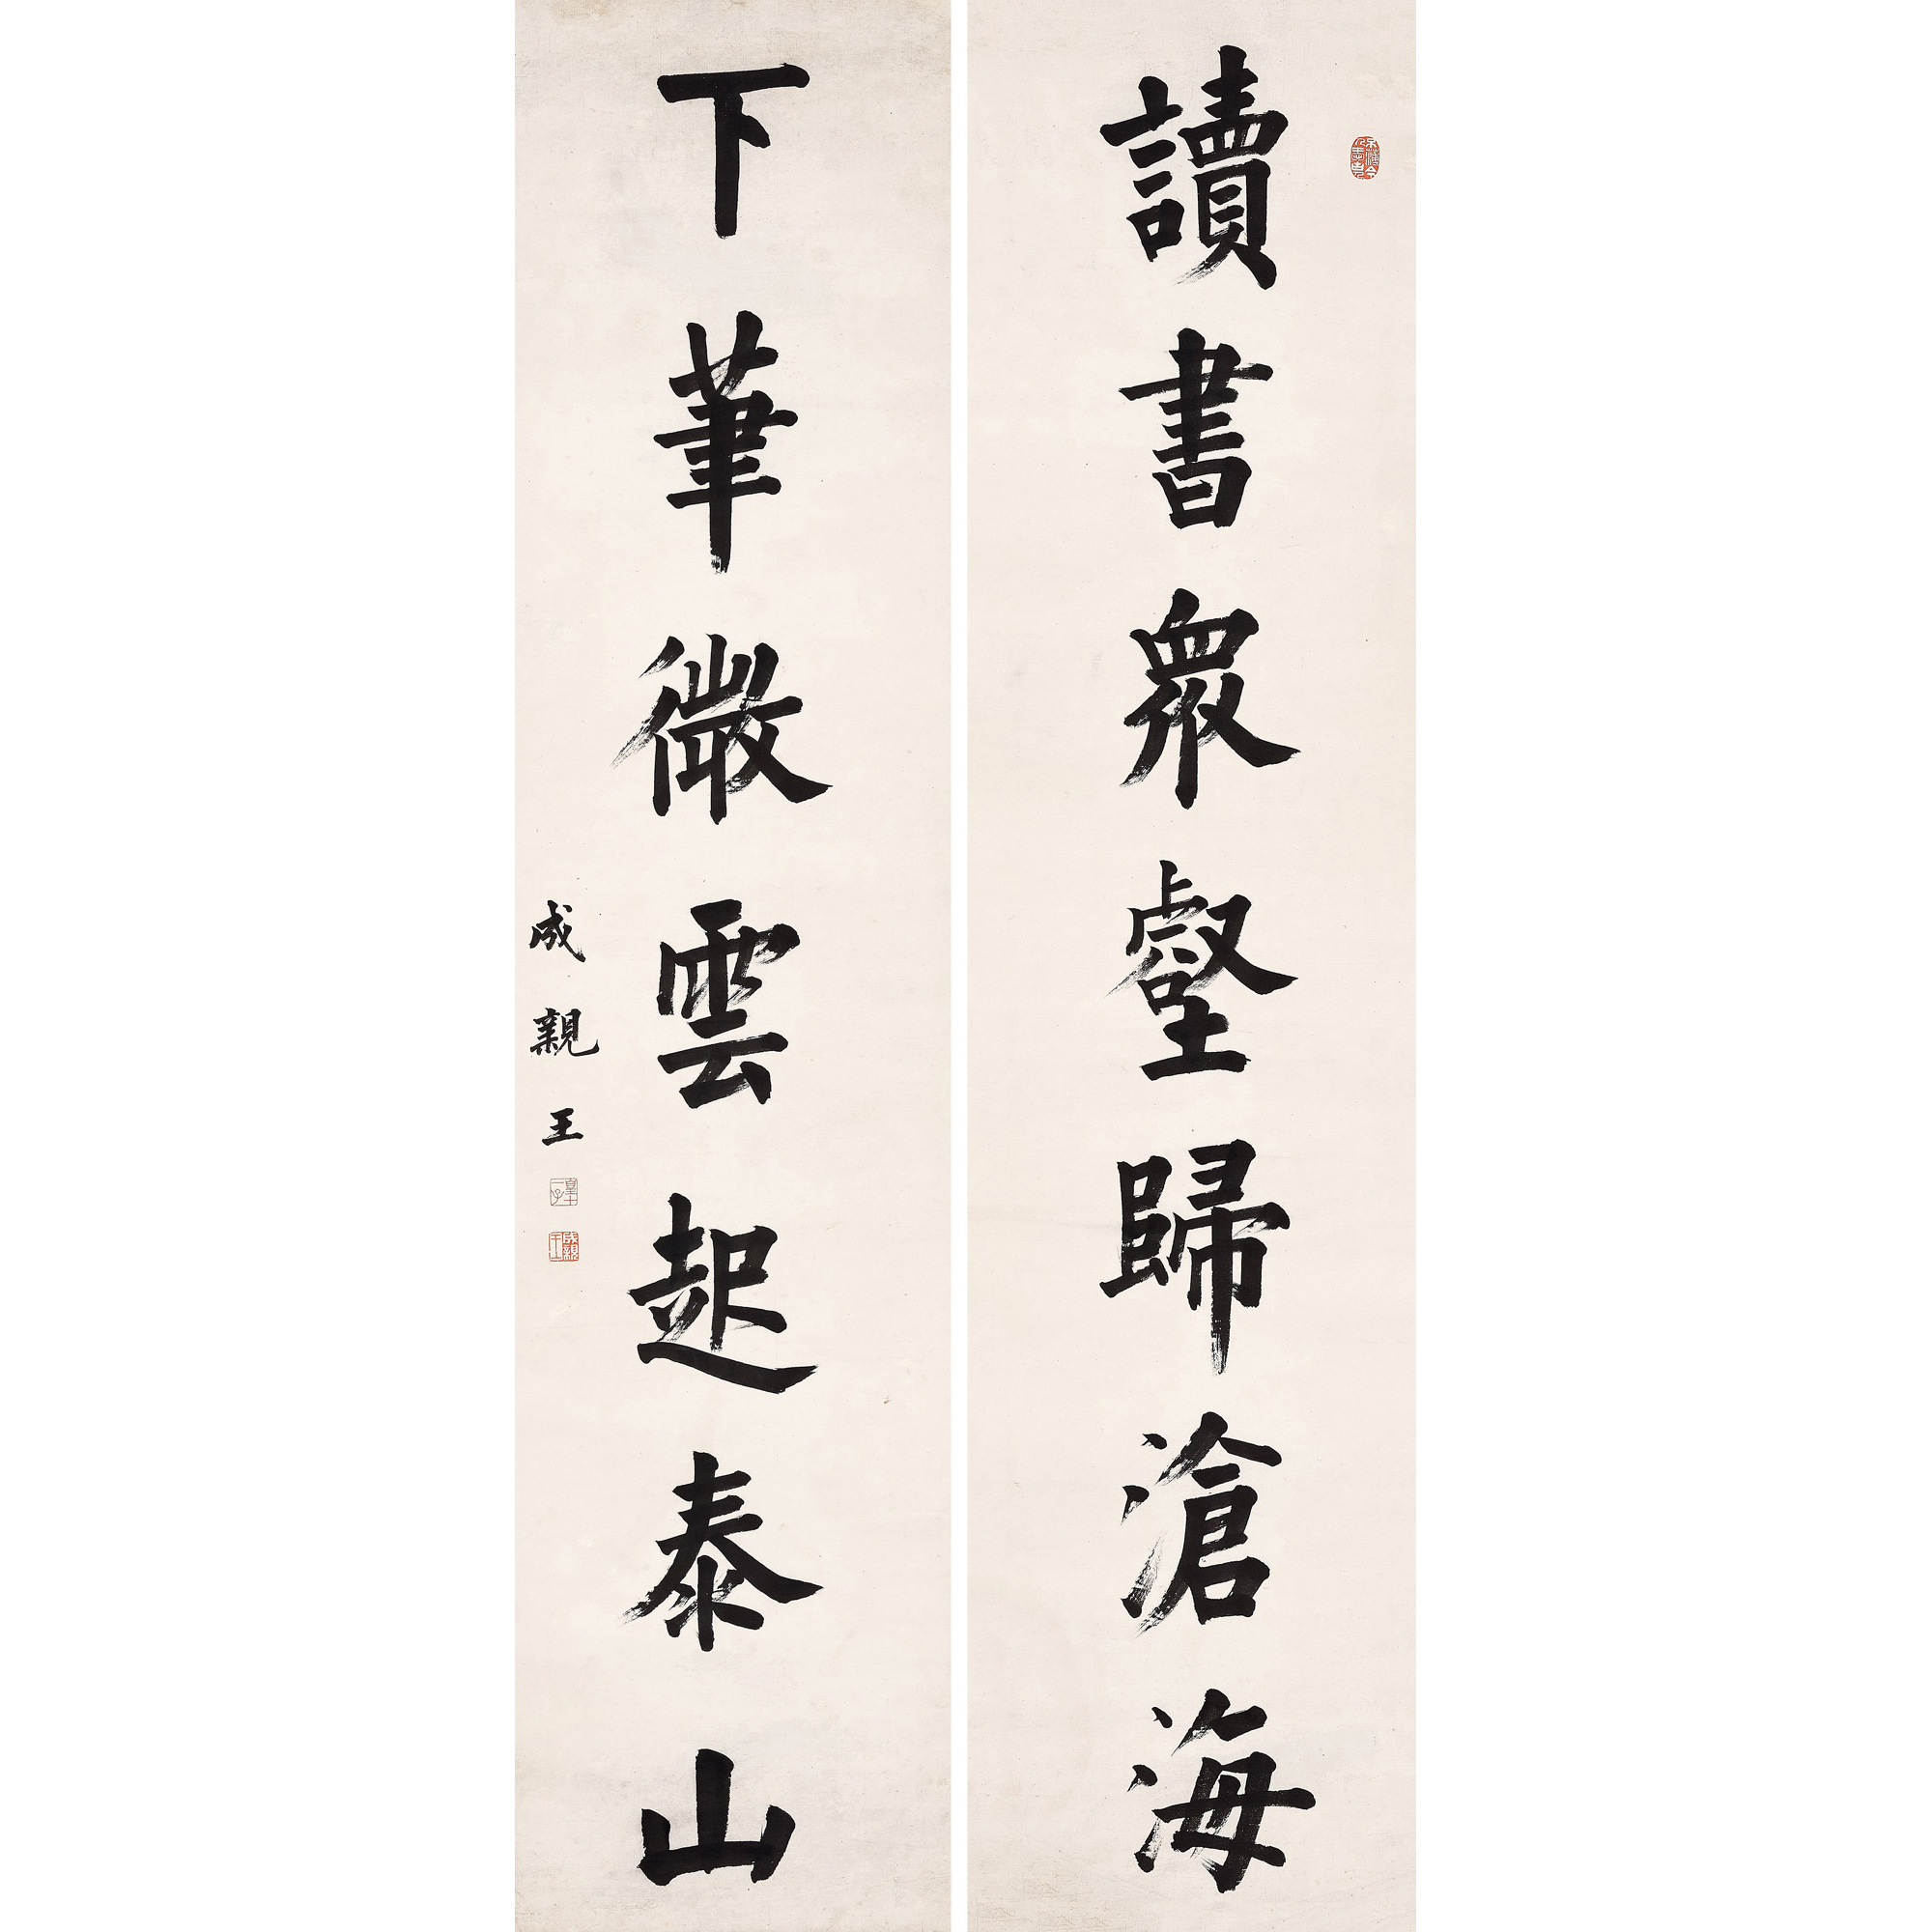 讀書衆壑歸滄海
下筆微雲起泰山
成親王
皇十一子
成親王